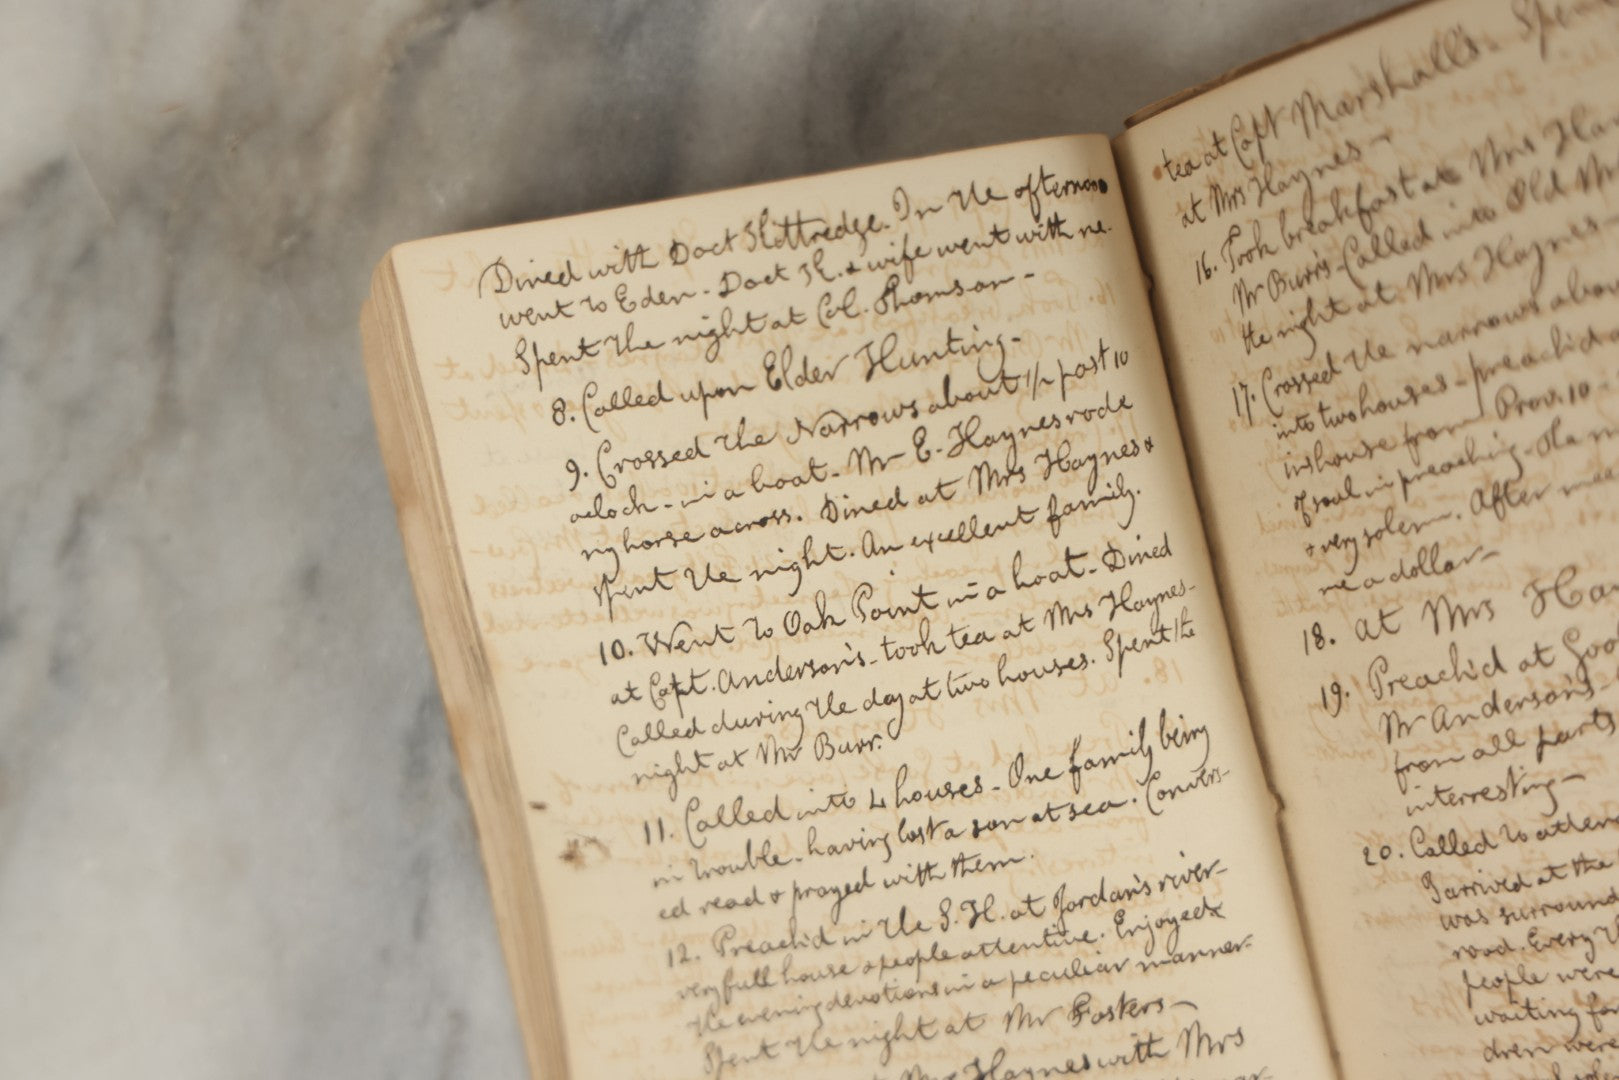 Dined with Doct Kittredge. In the afternoo
went to Eden - Doct K. & wife went with me.
Spent the night at Col. Thomson -
8. Called upon Elder Hunting -
9. Crossed the Narrows about 1/2 past 10
oclock - in a boat - Mr E. Haynes rode
my horse across. Dined at Mrs Haynes &
spent the night. An excellent family.
10. Went to Oak Point in a boat - Dined
at Capt. Anderson's - took tea at Mrs Haynes -
Called during the day at two houses. Spent the
night at Mr Burr.
11. Called into 4 houses - One family being
in trouble - having lost a son at sea. Convers-
ed read & prayed with them.
12. Preach'd in the S. H. at Jordan's river -
very full house & people attentive. Enjoyed
the evening devotions in a peculiar manner -
Spent the night at Mr Fosters -
Haynes with Mrs
tea at Capt Marshalls - Spen
at Mrs Haynes -
16. Took breakfast at Mrs Han
Mr Burr's - Called into Old Mr
the night at Mrs Haynes -
17. Crossed the narrows abou
into two houses - preach'd a
in house from Prov. 10 -
of soul in preaching -
& very solem. After mee
me a dollar -
18. at Mrs Ha
19. Preach'd at Goo
Mr Anderson's -
from all parts
interresting -
20. Called to atten
I arrived at the
was surround
road. Every
people were
waiting for
dren were